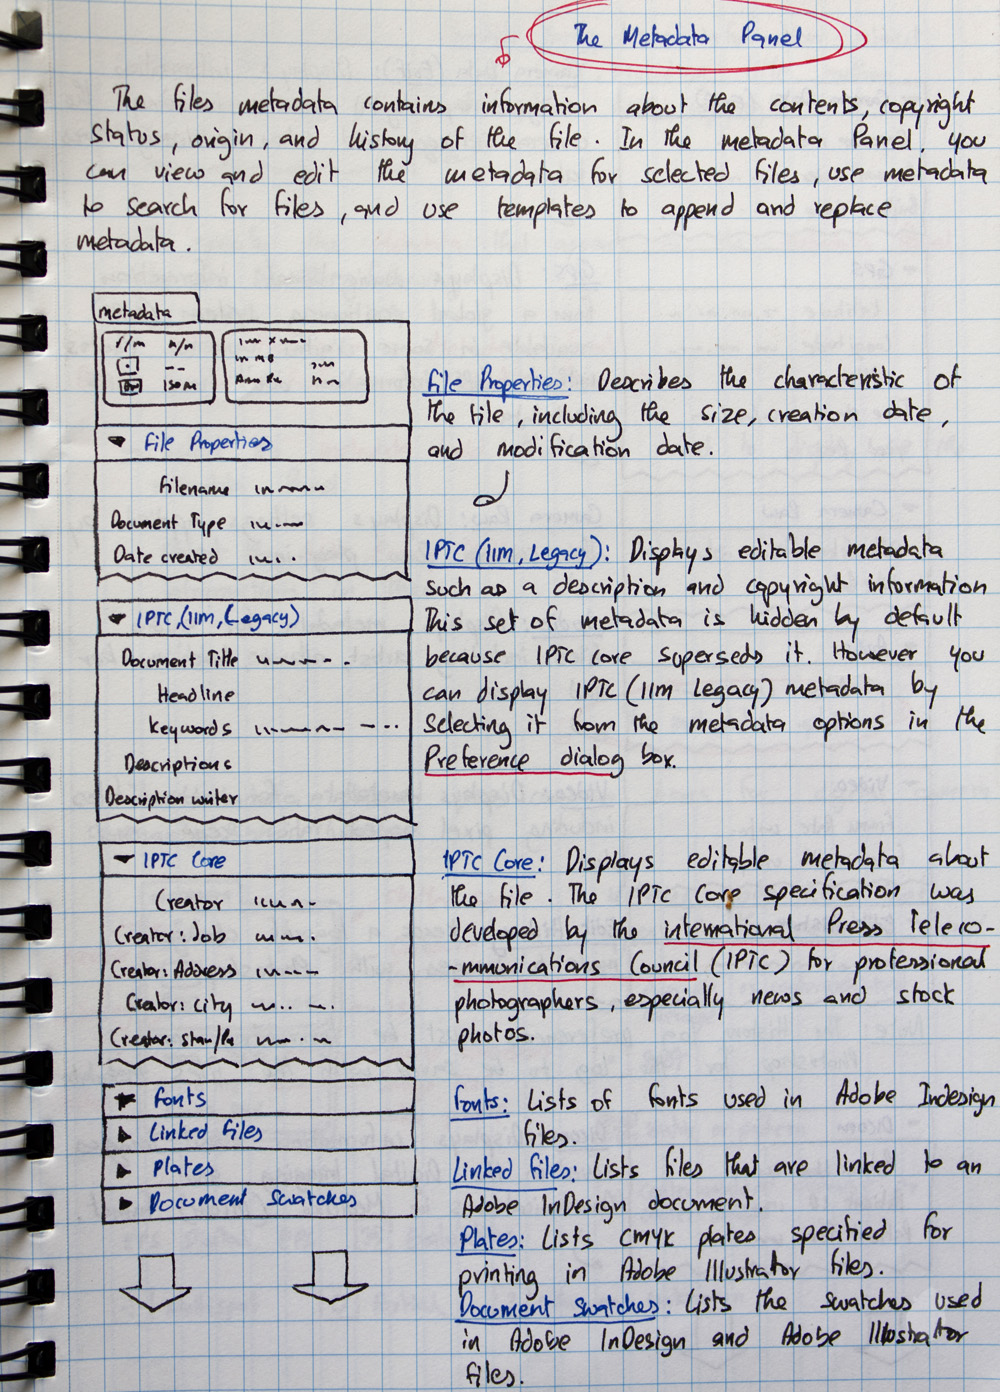 The Metadata Panel
The files metadata contains information about the contents, copyright
status, origin, and history of the file. In the metadata Panel, you
can view and edit the metadata for selected files, use metadata
to search for files, and use templates to append and replace
metadata.
metadata
File Properties
Filename
Document Type
Date created
IPTC, (IIM, Legacy)
Document Title
Headline
Keywords
Descriptions
Description writer
IPTC Core
Creator
Creator: Job
Creator: Address
Creator: City
Creator:
Fonts
Linked Files
Plates
Document Swatches
File Properties: Describes the characteristic of
the file, including the size, creation date,
and modification date.
IPTC (IIM, Legacy): Displays editable metadata
such as a description and copyright information
This set of metadata is hidden by default
because IPTC core superseds it. However you
can display IPTC (IIM Legacy) metadata by
selecting it from the metadata options in the
Preference dialog box.
IPTC Core: Displays editable metadata about
the file. The IPTC Core specification was
developed by the international Press Teleco-
-mmunications Council (IPTC) for professional
photographers, especially news and stock
photos.
Fonts: Lists of fonts used in Adobe Indesign
files.
Linked Files: Lists files that are linked to an
Adobe InDesign document.
Plates: Lists CMYK plates specified for
printing in Adobe Illustrator files.
Document Swatches: Lists the swatches used
in Adobe InDesign and Adobe Illustrator
files.